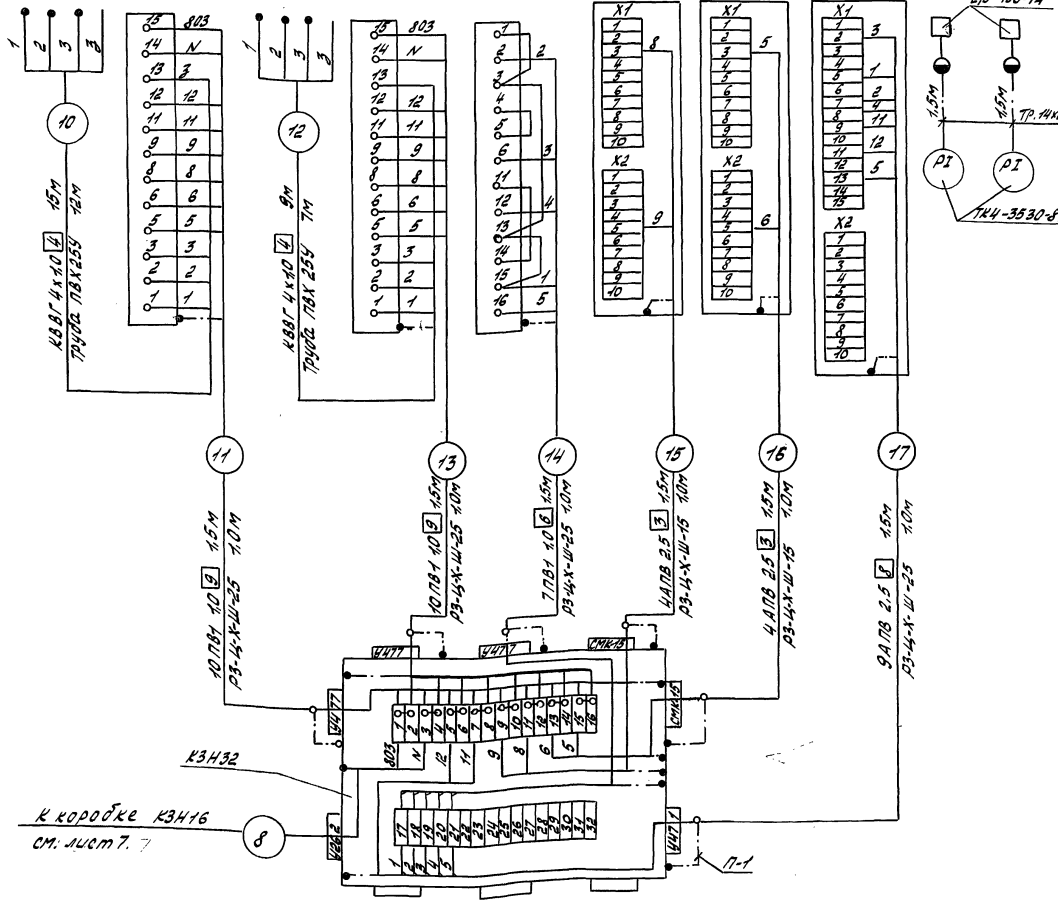 1 2 3 З
10
КВВГ 4х1.0 4 15м
Труба ПВХ 25У 12м
15 803
14 N
13 З
12 12
11 11
9 9
8 8
6 6
5 5
3 3
2 2
1 1
1 2 3 З
12
КВВГ 4х1.0 4 9м
Труба ПВХ 25У 7м
15 803
14 N
13
12 12
11 11
9 9
8 8
6 6
5 5
3 3
2 2
1 1
1
2 2
3
4
5
6 3
11
12 4
13
14
15 1
16 5
X1
1
2
3 8
4
5
6
7
8
9
10
X2
1
2
3
4 9
5
6
7
8
9
10
X1
1
2
3 5
4
5
6
7
8
9
10
X2
1
2
3
4
5 6
6
7
8
9
10
X1
1
2 3
3
4
5 1
6
7 2
8 4
9 11
10
11 12
12
13 5
14
15
X2
1
2
3
4
5
6
7
8
9
10
1,5м 1,5м
PI PI
11 13 14 15 16 17
10 ПВ1 1.0 9 1.5м
РЗ-Ц-Х-Ш-25 1.0м
10 ПВ1 1.0 9 1.5м
РЗ-Ц-Х-Ш-25 1.0м
7 ПВ1 1.0 6 1.5м
РЗ-Ц-Х-Ш-25 1.0м
4АПВ 2.5 3 1.5м
РЗ-Ц-Х-Ш-15 1.0м
4АПВ 2.5 3 1.5м
РЗ-Ц-Х-Ш-15 1.0м
9АПВ 2.5 8 1.5м
РЗ-Ц-Х-Ш-25 1.0м
У477 У477 СМК15
У477 СМК15
1 2 3 4 5 6 7 8 9 10 11 12 13 14 15 16
803 N 12 11 9 8 6 5
КЗН32
К коробке КЗН16
см. лист 7.
8
У262
17 18 19 20 21 22 23 24 25 26 27 28 29 30 31 32
1 2 3 4 5
П-1